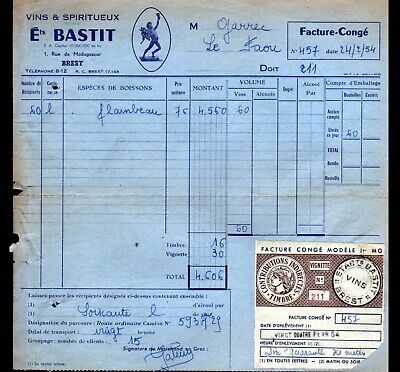 VINS & SPIRITUEUX
Éts BASTIT
S. A. Capital 10.000.000 de frs
1, Rue de Madagascar
BREST
TÉLÉPHONE 8-12 R. C. BREST 17.169
M Jarrec
Le Faou
DOIT 211
Facture-Congé
N° 457 date 24/2/54
Nombre de Récipients
ESPÈCES DE BOISSONS
Prix unitaire
MONTANT
VOLUME
Vins
Alcools
Degré
Alcool Pur
Compte d'Emballage
Bouteilles
Casiers
60 l flambeau 76 4.560 60
Ancien compte
Livré ce jour 60
TOTAL
Rendu
Nouveau
60
Timbre 16
Vignette 30
TOTAL 4.606
Laissez-passer les récipients désignés ci-dessus contenant ensemble :
Soixante l
Désignation du parcours : Route ordinaire Camion N° 5937 J9
Délai de transport : vingt heures
Groupage nombre de clients : 15
Signature du Marchand en Gros :
FACTURE CONGÉ MODÈLE MG
CONTRIBUTIONS INDIRECTES
TIMBRE
VIGNETTE
N°
211
ETAB. BASTIT
VINS
BREST
FACTURE CONGÉ N° 457
DATE D'ENLÈVEMENT (1)
VINGT QUATRE FEVR 54
HEURE D'ENLÈVEMENT (1) (2)
quarante
(2) MATIN OU SOIR